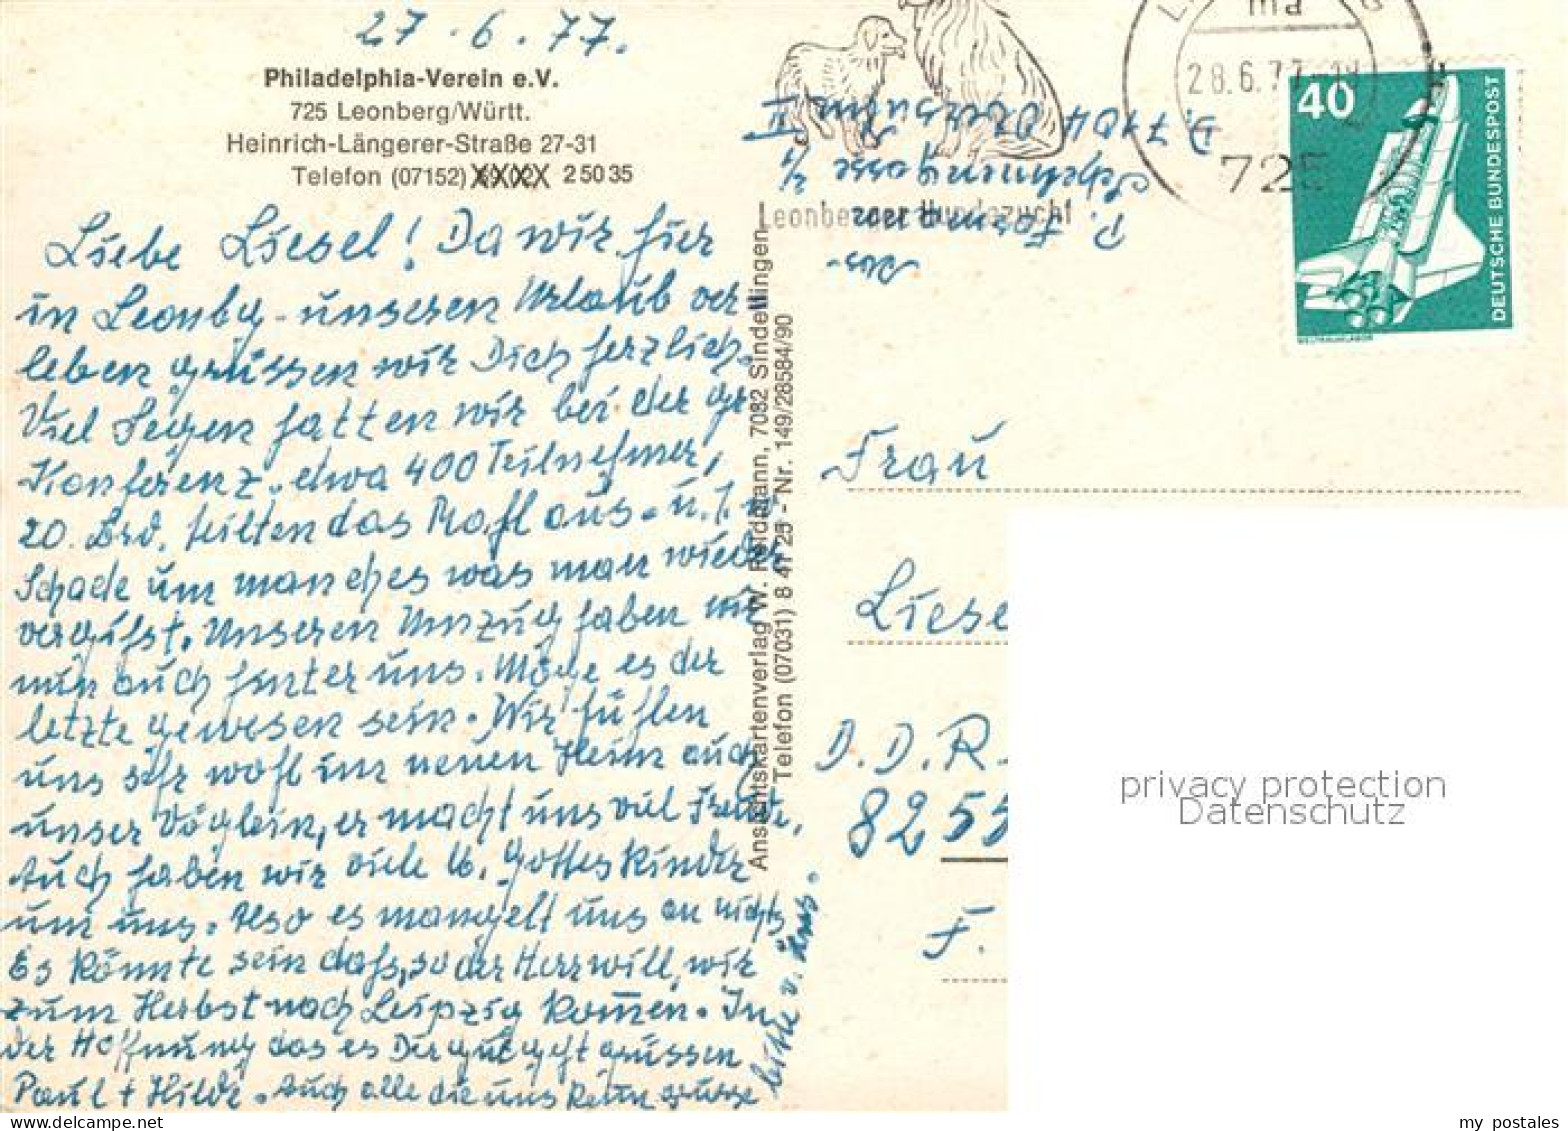 27.6.77.
Philadelphia-Verein e.V.
725 Leonberg/Württ.
Heinrich-Längerer-Straße 27-31
Telefon (07152) 25035
Liebe Liesel! Da wir hier
in Leonbg. unseren Urlaub ver-
leben grüssen wir Dich herzlich.
Viel Segen hatten wir bei der gr.
Konferenz. etwa 400 Teilnehmer,
20. Brd. teilten das Mahl aus. u.s.w.
Schade um manches was man wieder
vergißt. Unseren Umzug haben wir
nun auch hinter uns. Möge es der
letzte gewesen sein. Wir fühlen
uns sehr wohl im neuen Heim auch
unser Vöglein, er macht uns viel Freude.
Auch haben wir viele lb. Gotteskinder
um uns. Also es mangelt uns an nichts
Es könnte sein daß, so der Herr will, wir
zum Herbst nach Leipzig kommen. In
der Hoffnung das es Dir gut geht grüssen
Paul + Hilde. Auch alle die uns kenn. grüsse
bitte v. uns.
Ansichtskartenverlag W. Reidmann, 7032 Sindelfingen
Telefon (07031) 8 41 23 - Nr. 149/28584/90
Leonberger Hundezucht
28.6.77-18
725
40
DEUTSCHE BUNDESPOST
P. Formann
D. 7104 Obersulm II
Frau
Liese
D.D.R.
8255
F.
privacy protection
Datenschutz
my postales